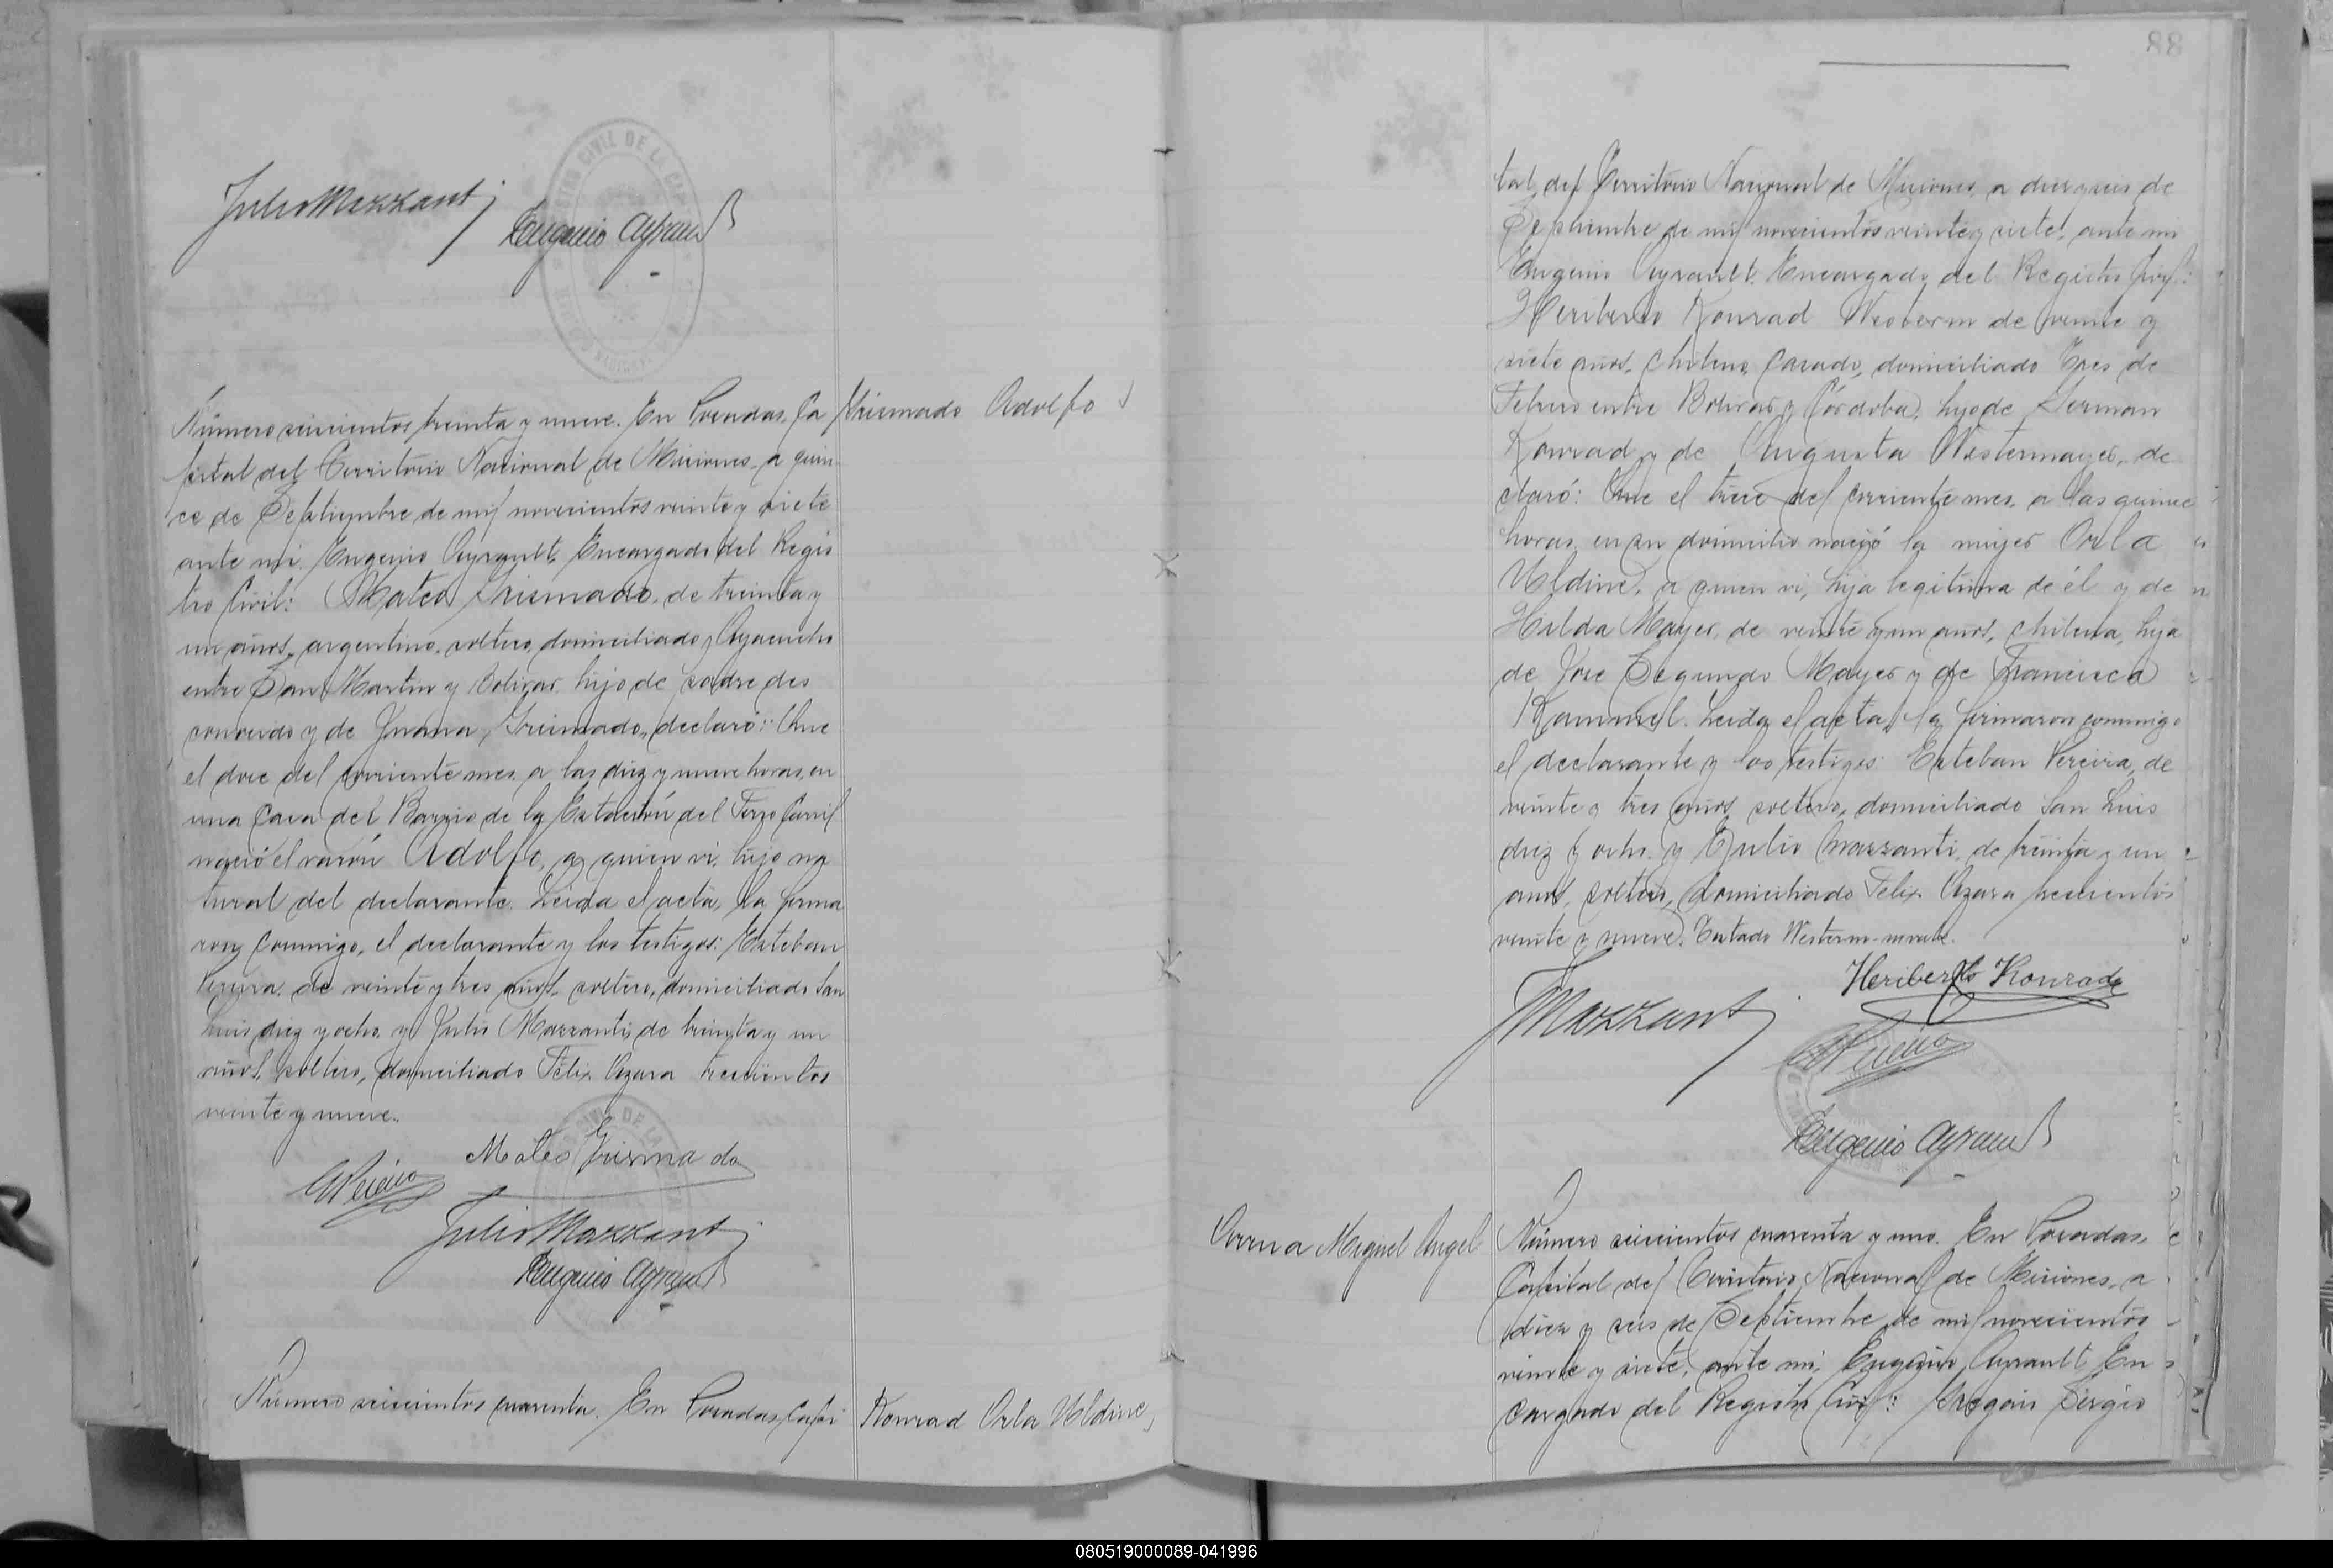 Julio Mazzanti
Eugenio Ayrault
Número seiscientos treinta y nueve. En Posadas, Ca
pital del Territorio Nacional de Misiones, a quin
ce de Septiembre de mil novecientos veinte y siete
ante mi. Eugenio Ayrault, Encargado del Regis
tro Civil: Mateo Grismado, de treinta y
un años, argentino, soltero, domiciliado Ayacucho
entre San Martin y Bolivar, hijo de padre des
conocido y de Juana Grismado, declaró: Que
el doce del corriente mes, a las diez y nueve horas, en
una Casa del Barrio de la Estación del Ferro Carril
nació el varón Adolfo, a quien vi, hijo na
tural del declarante. Leida el acta, la firma
ron conmigo, el declarante y los testigos: Esteban
Pereira, de veinte y tres años, soltero, domiciliado San
Luis diez y ocho y Julio Mazzanti, de treinta y un
años, soltero, domiciliado Félix Azara trescientos
veinte y nueve.
Grismado Adolfo
Mateo Grismado
EPereira
Julio Mazzanti
Eugenio Ayrault
Número seiscientos cuarenta. En Posadas, Capi
Konrad Orla Uldine
88
tal del Territorio Nacional de Misiones, a diez y seis de
Septiembre de mil novecientos veinte y siete, ante mi
Eugenio Ayrault, Encargado del Registro Civil:
Heriberto Konrad Westerm de veinte y
siete años, chileno, casado, domiciliado Tres de
Febrero entre Bolivar y Córdoba, hijo de German
Konrad y de Augusta Westermayer, de
claró: Que el trece del corriente mes, a las quince
horas, en su domicilio nació la mujer Orla
Uldine, a quien vi, hija legitima de él y de
Hilda Mayer, de veinte y un años, chilena, hija
de Jose Segundo Mayer y de Francisca
Kammel. Leida el acta, la firmaron conmigo
el declarante y los testigos: Esteban Pereira, de
veinte y tres años, soltero, domiciliado San Luis
diez y ocho y Julio Mazzanti, de treinta y un
años, soltero, domiciliado Félix Azara trescientos
veinte y nueve. Testado Westerm-no vale.
Heriberto Konrad
JMazzanti
EPereira
Eugenio Ayrault
Correa Miguel Angel
Número seiscientos cuarenta y uno. En Posadas,
Capital del Territorio Nacional de Misiones, a
diez y seis de Septiembre de mil novecientos
veinte y siete, ante mi, Eugenio Ayrault, En
cargado del Registro Civil: Sergio
080519000089-041996